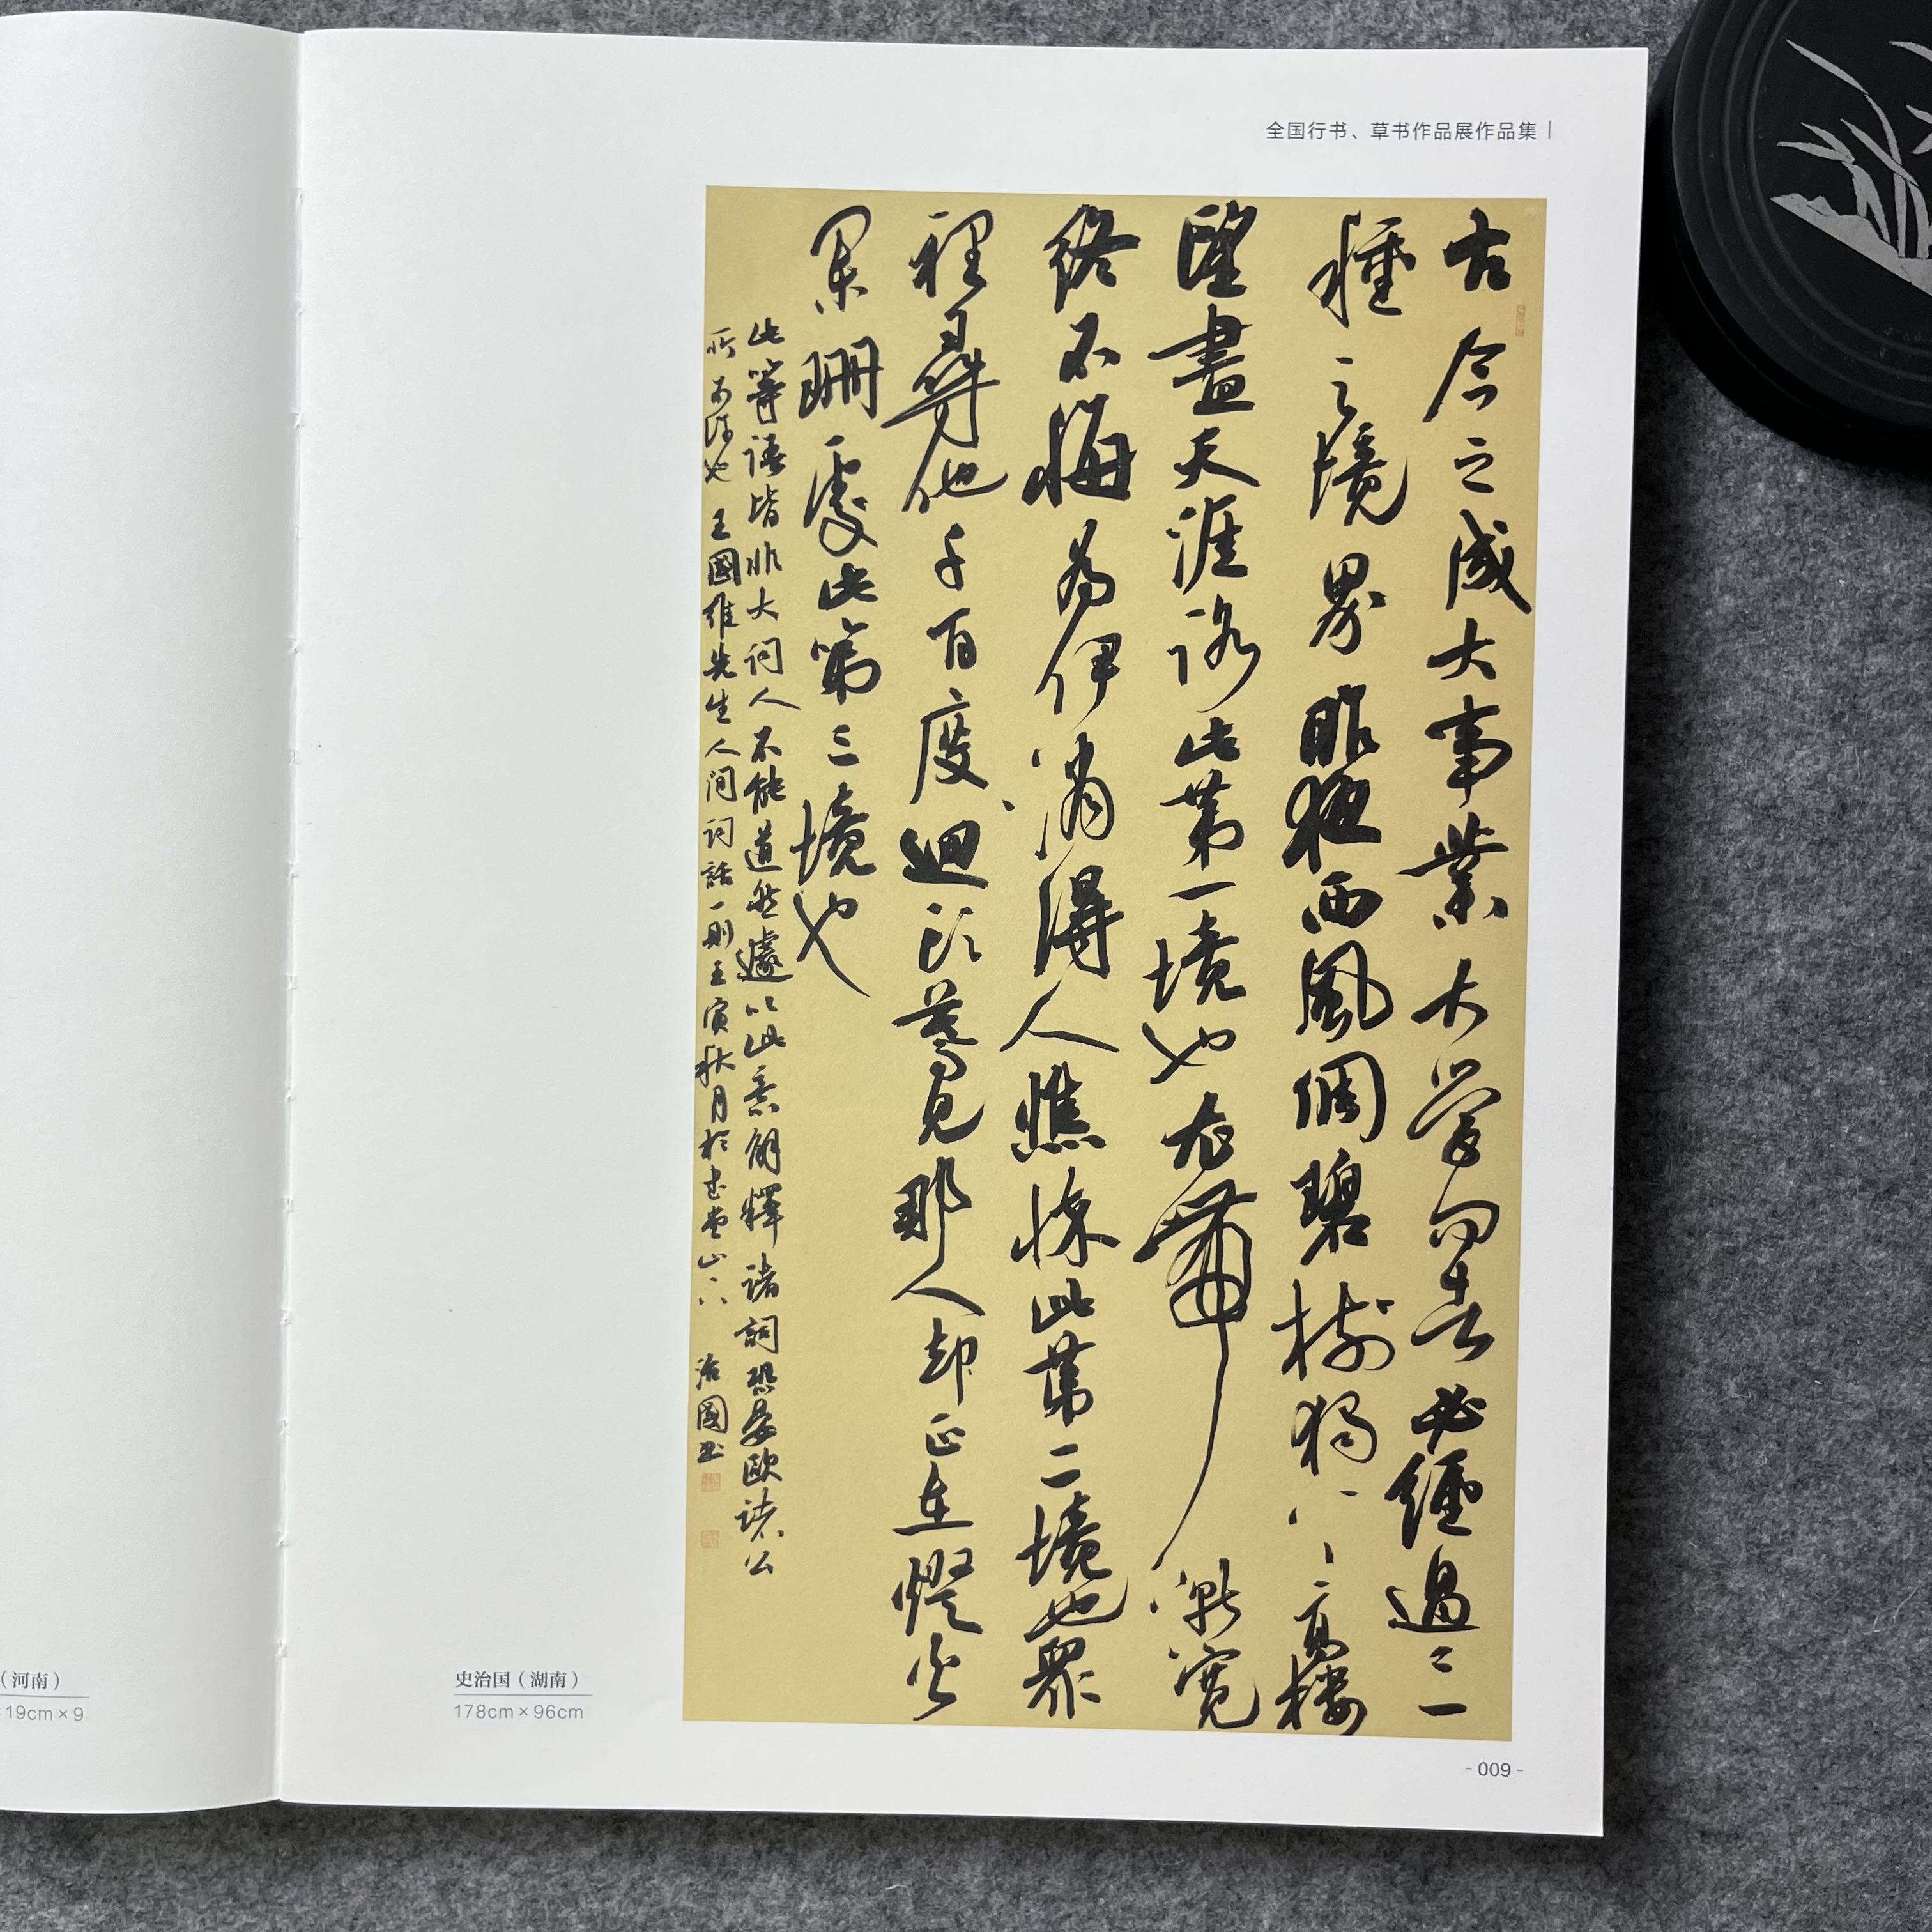 全国行书、草书作品展作品集
古今之成大事業大學問者必經過三
種之境界昨夜西風凋碧樹獨上高樓
望盡天涯路此第一境也衣帶漸寬
終不悔為伊消得人憔悴此第二境也眾
裡尋他千百度迴頭驀見那人却正在燈火
闌珊處此第三境也
此等語皆非大詞人不能道然遽以此意解釋諸詞恐晏歐諸公
所不許也 王國維先生人間詞話一則壬寅秋月於書堂山下 治國書
（河南）
19cm×9
史治国（湖南）
178cm×96cm
- 009 -